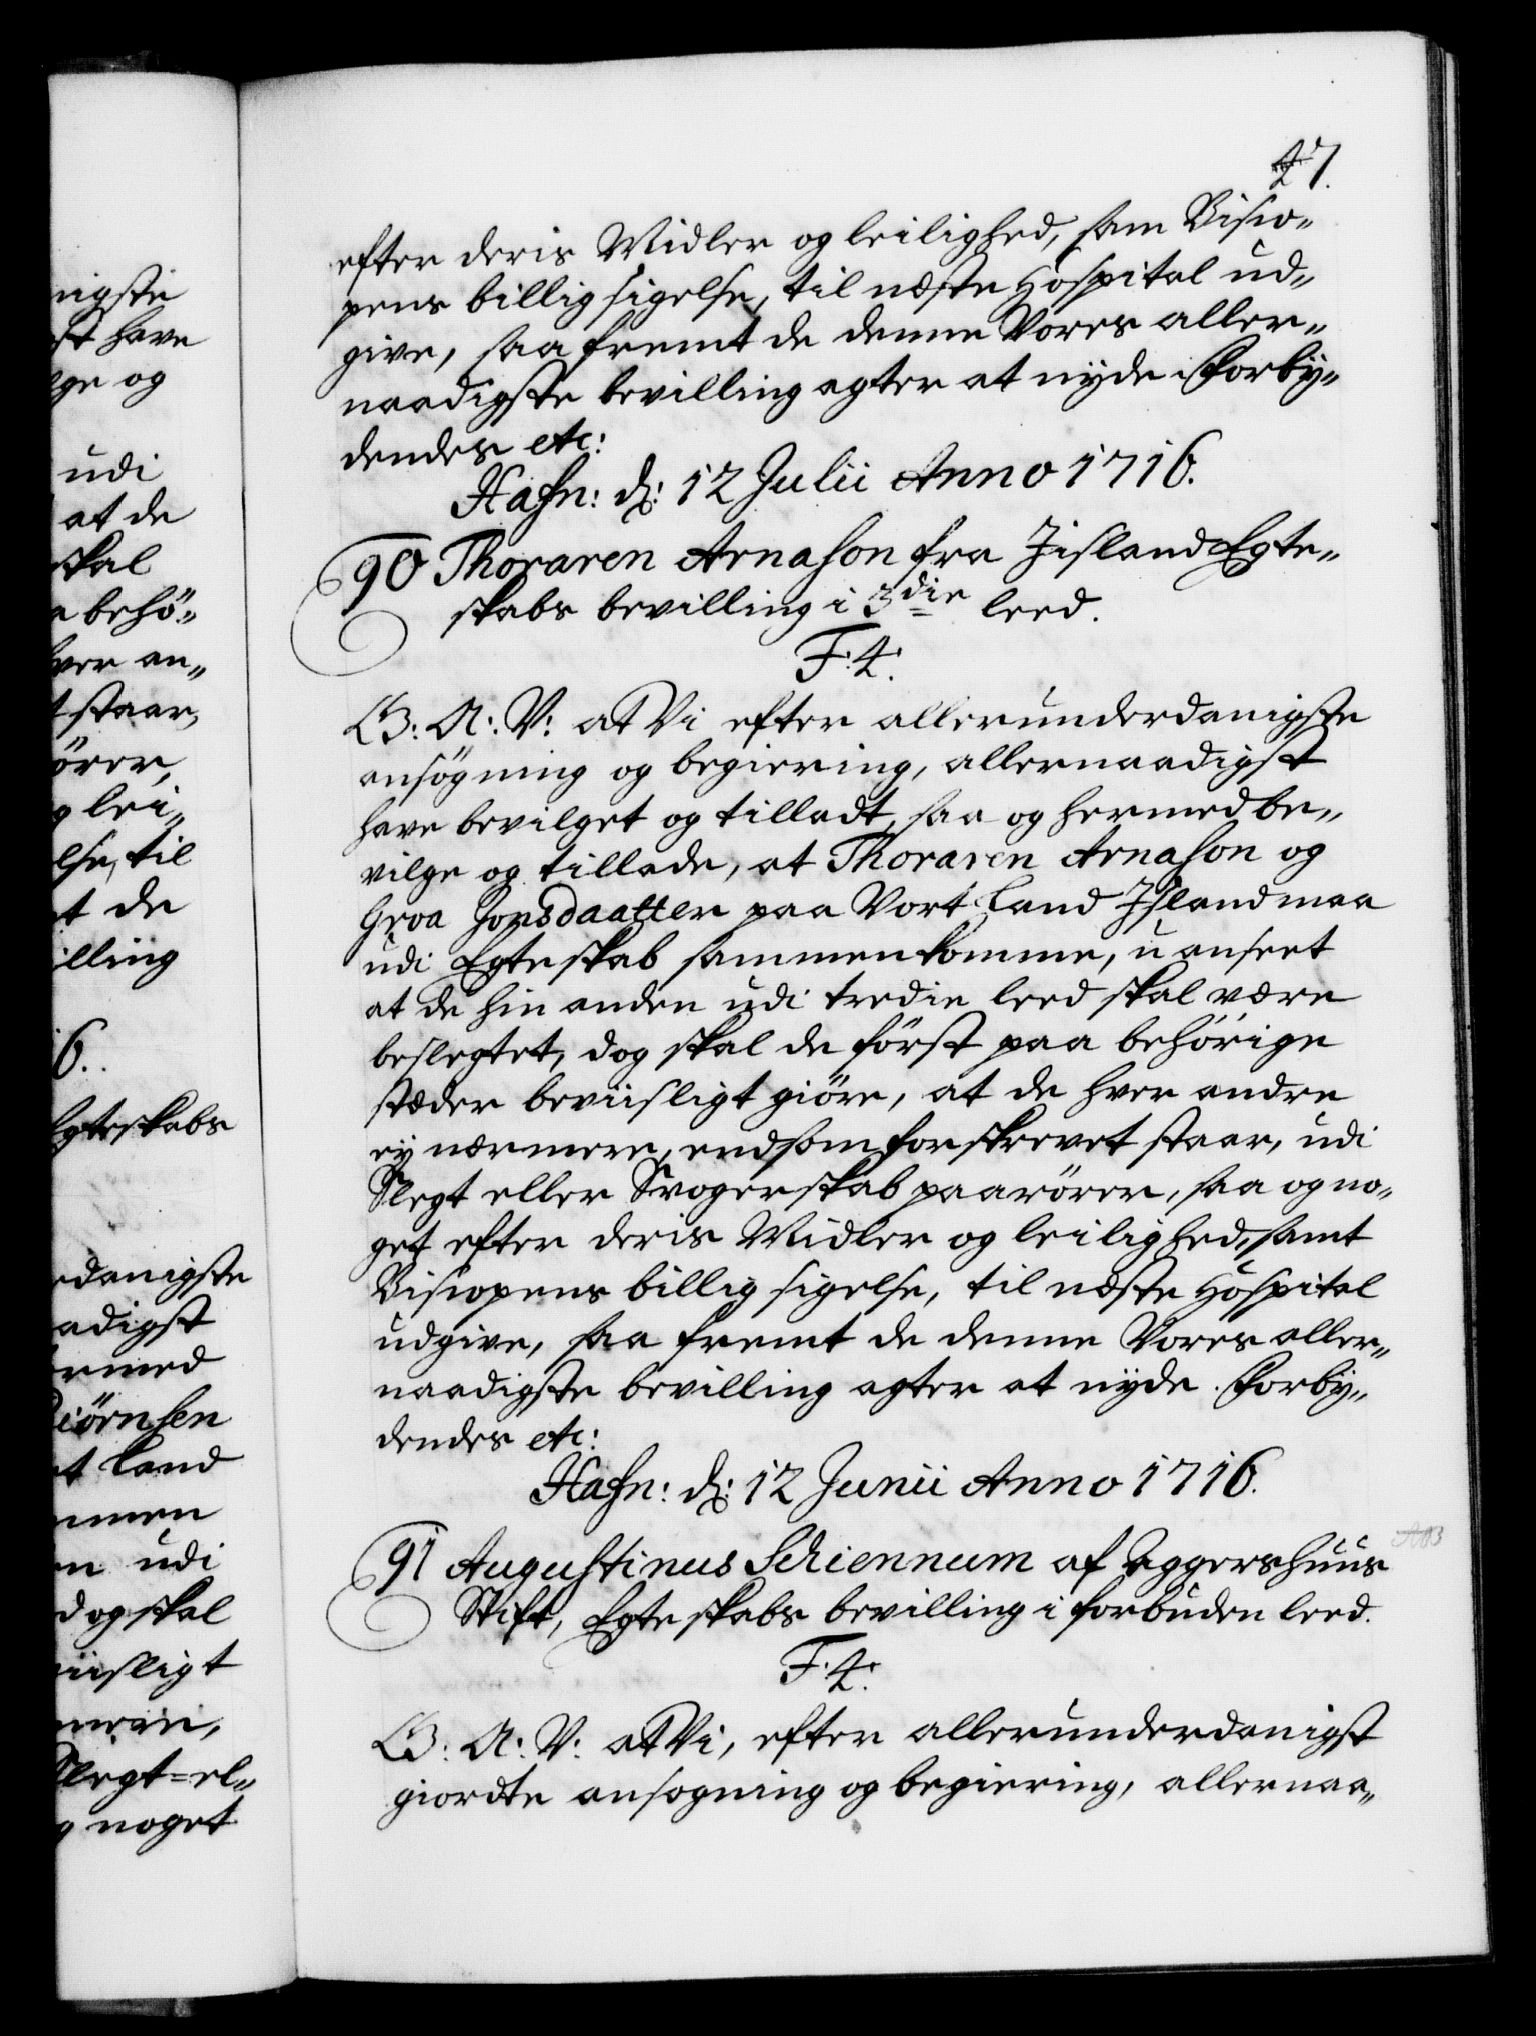 47.
efter deris Midler og leilighed, sam Bisco„
pens billig sigelse, til næste Hospital ud„
give, saa fremt de denne Vores aller„
naadigste bevilling agter at nyde. Forby„
dendes etc:
Hafn: d: 12 Julii Anno 1716.
90 Thoraren Arnason fra Jisland Egte„
skabs bevilling i 3die leed.
F: 4:
G: A: V: at Vi efter allerunderdanigste
ansögning og begiering, allernaadigst
have bevilget og tilladt, saa og hermed be„
vilge og tillade, at Thoraren Arnason og
Groa Jonsdaatter paa Vort Land Jsland maa
udi Egteskab sammenkomme, uanseet
at de hin anden udi tredie leed skal være
beslegtet, dog skal de först paa behörige
stæder beviisligt giöre, at de hver andre
ey nærmere, end som forskrevet staar, udi
Slegt eller Svogerskab paarörer, saa og no„
get efter deris Midler og leilighed, samt
Biscopens billig sigelse, til næste Hospital
udgive, saa fremt de denne Vores aller„
naadigste bevilling agter at nyde. Forby„
dendes etc:
Hafn: d: 12 Junii Anno 1716.
91 Augustinus Schiennum af Aggershuus
Stift, Egteskabs bevilling i forbuden leed.
F: 4:
G: A: V: at Vi, efter allerunderdanigst
giordte ansogning og begiering, allernaa„
nigste
st have
ge og
udi
at de
skal
behö„
ver an„
staar,
örer,
g lei„
else, til
t de
illing
6.
Egteskabs
danigste
adigst
ermed
Biörnsen
t Land
mmen
udi
dog skal
iisligt
mere,
Slegt = el„
g noget